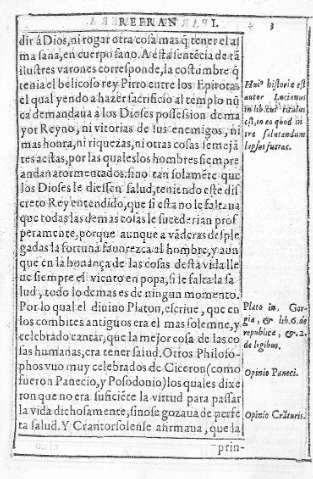 REFRAN I.
3
dir à Dios, ni rogar otra cosa mas q̃ tener el al
ma sana, en cuerpo sano. A esta sentẽcia de tã
ilustres varones corresponde, la costũbre q̃
tenia el belicoso rey Pirro entre los Epirotas
el qual yendo a hazer sacrificio al templo nũ
ca demandaua a los Dioses possession de ma
yor Reyno, ni vitorias de sus enemigos, ni
mas honra, ni riquezas, ni otras cosas semejã
tes a estas, por las quales los hombres siempre
andan atormentados: sino tan solamẽte que
los Dioses le diessen salud, teniendo este dis
creto Rey entendido, que si esta no le faltaua
que todas las demas cosas le sucederian pros
peramente, porque aunque a vãderas desple
gadas la fortuna fauorezca al hombre, y aun
que en la bonãça de las cosas desta vida lle
ue siempre el viento en popa, si le falta la sa
lud, todo lo demas es de ningun momento.
Por lo qual el diuino Platon, escriue, que en
los combites antiguos era el mas solemne, y
celebrado cantar, que la mejor cosa de las co
sas humanas, era tener salud. Otros Philoso-
phos vuo muy celebrados de Ciceron (como
fueron Panecio, y Posodonio) los quales dixe
ron que no era suficiẽte la virtud para passar
la vida dichosamente, sino se gozaua de perfe
ta salud. Y Crantor solense afirmaua, que la
prin-
Huiꝰ historiæ est
autor Lucianus
in lib. cui titulus
est, in eo quod in
ter salutandum
lapsus fuerat.
Plato in. Gor-
gia, & lib. 6. de
republica, & .2.
de legibus.
Opinio Paneci.
Opinio Crãtoris.